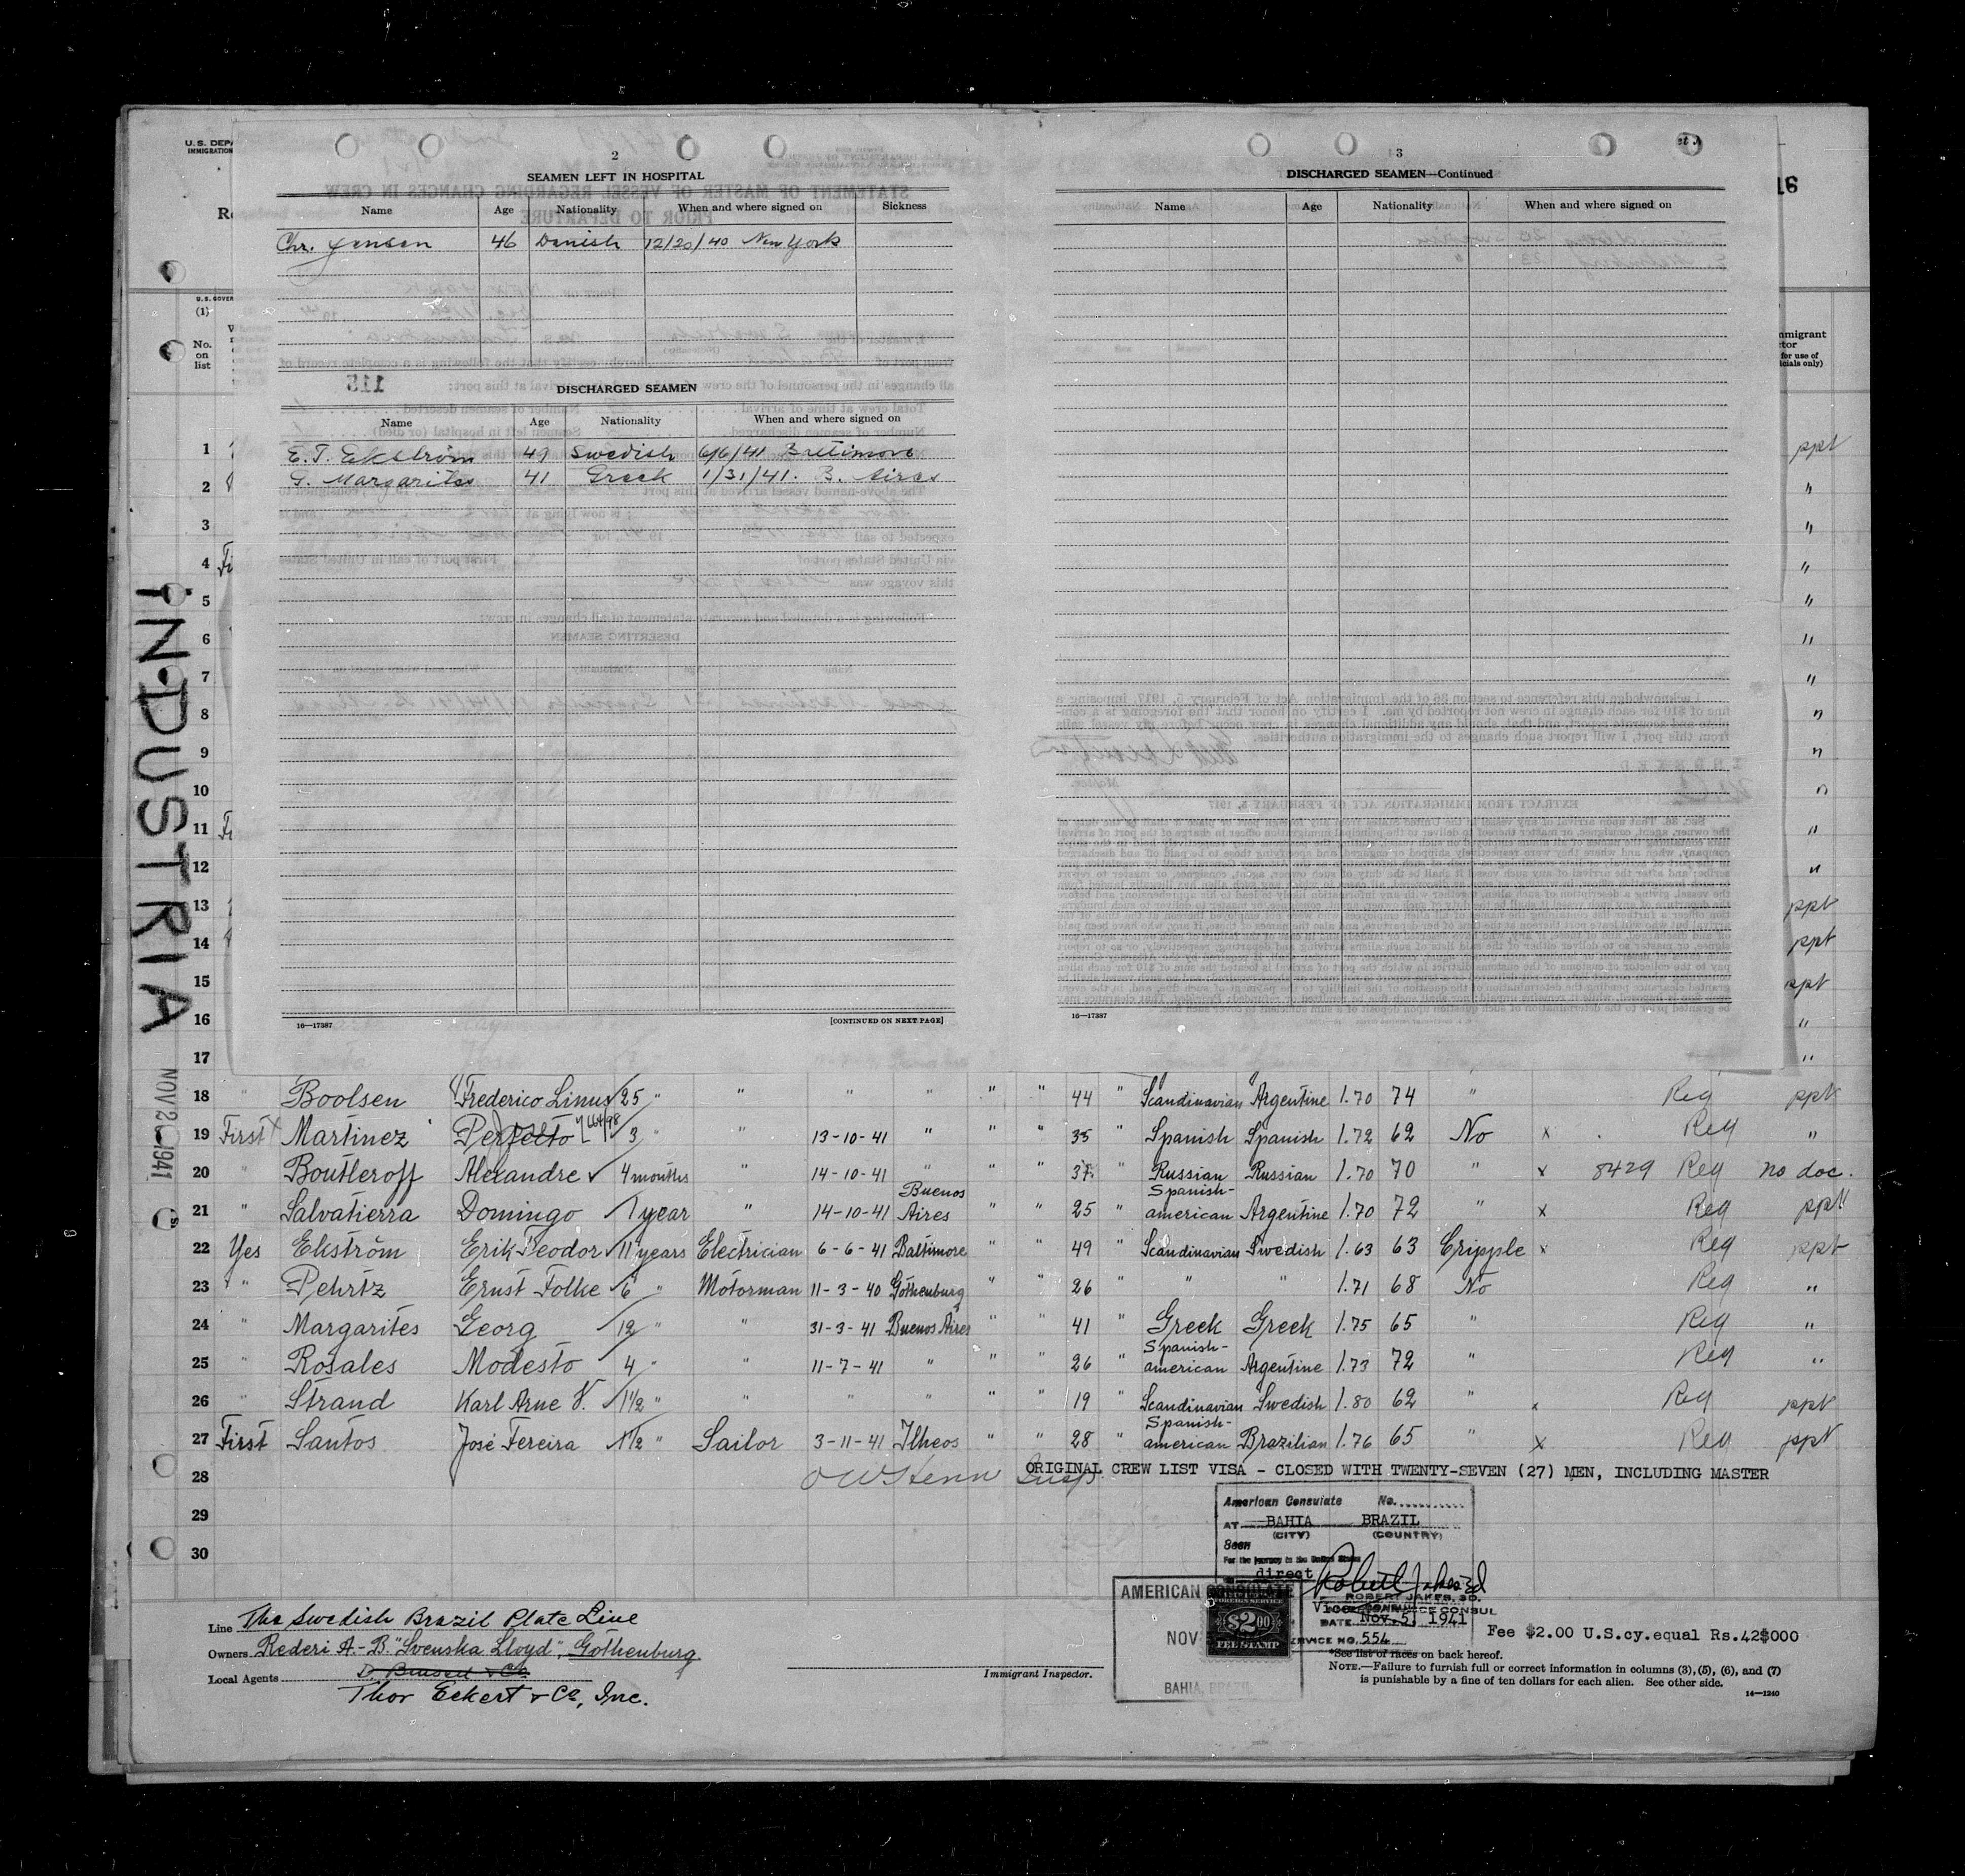 U.S. DEPA
IMMIGRATION
2
SEAMEN LEFT IN HOSPITAL
Name Age Nationality When and where signed on Sickness
Chr. Jensen 46 Danish 12/20/40 New York
DISCHARGED SEAMEN
Name Age Nationality When and where signed on
E. T. Ekström 49 Swedish 6/6/41 Baltimore
G. Margarites 41 Greek 1/31/41. B. Aires
16—17387 [CONTINUED ON NEXT PAGE]
3
DISCHARGED SEAMEN—Continued
Name Age Nationality When and where signed on
16—17387
16
U.S. GOVER
(1)
No.
on
list
mmigrant
ctor
for use of
icials only)
1 ppt
2 "
3 "
4 Fi "
5 "
6 "
7 "
8 "
9 "
10 "
11 Fi "
12 "
13 ppt
14 ppt
15 ppt
16 "
17 "
INDUSTRIA
NOV 2 1941
18 " Boolsen Frederico Linus 25 " " " " " " 44 " Scandinavian Argentine 1.70 74 " Reg ppt
19 First Martinez Perfecto 3 " " 13-10-41 " " " 35 Spanish Spanish 1.72 62 No x Reg "
20 " Boutleroff Alexandre 4 months " 14-10-41 " " " 37 " Russian Russian 1.70 70 " x 8429 Reg no doc.
21 " Salvatierra Domingo 1 year " 14-10-41 Buenos Aires " " 25 " Spanish-american Argentine 1.70 72 " x Reg ppt
22 Yes Ekström Erik Teodor 11 years Electrician 6-6-41 Baltimore " " 49 " Scandinavian Swedish 1.63 63 Cripple x Reg ppt
23 " Pehrtz Ernst Folke 6 " Motorman 11-3-40 Gothenburg " " 26 " " " 1.71 68 No Reg "
24 " Margarites Georg 12 " " 31-3-41 Buenos Aires " " 41 " Greek Greek 1.75 65 " Reg "
25 " Rosales Modesto 4 " " 11-7-41 " " " 26 " Spanish-american Argentine 1.73 72 " Reg "
26 " Strand Karl Arne V. 1½ " " " " " " 19 " Scandinavian Swedish 1.80 62 " x Reg ppt
27 First Santos José Fereira 1½ " Sailor 3-11-41 Ilheos " " 28 " Spanish-american Brazilian 1.76 65 " x Reg ppt
28 ORIGINAL CREW LIST VISA - CLOSED WITH TWENTY-SEVEN (27) MEN, INCLUDING MASTER
29
30
American Consulate No...........
AT BAHIA BRAZIL
(CITY) (COUNTRY)
Seen
For the journey to the United States
direct
ROBERT JAKES, 3D.
VICE CONSUL
DATE Nov. 5, 1941
SERVICE NO. 554
AMERICAN CONSULATE
NOV
BAHIA, BRAZIL
FOREIGN SERVICE
$2.00
FEE STAMP
Fee $2.00 U.S.cy.equal Rs.42$000
Line The Swedish Brazil Plate Line
Owners Rederi A.-B. "Svenska Lloyd", Gothenburg
Local Agents
Thor Eckert & Co, Inc.
Immigrant Inspector.
*See list of races on back hereof.
NOTE.—Failure to furnish full or correct information in columns (3), (5), (6), and (7)
is punishable by a fine of ten dollars for each alien. See other side.
14—1240